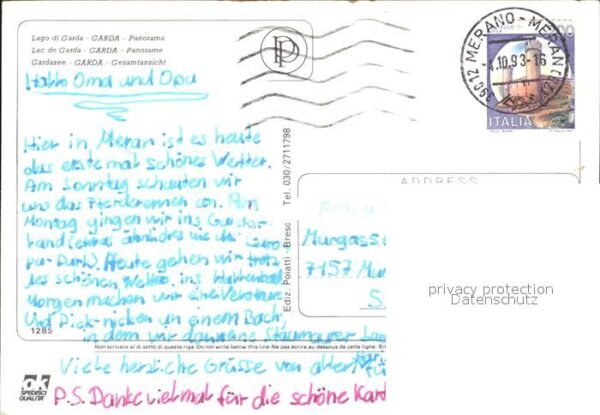 Lago di Garda - GARDA - Panorama
Lac de Garda - GARDA - Panorame
Gardasee - GARDA - Gesamtansicht
Hallo Oma und Opa
Hier in Meran ist es heute
das erste mal schönes Wetter.
Am Sonntag schauten wir
uns das Pferderennen an. Am
Montag gingen wir ins Garda-
land (etwas ähnliches wie der Euro
pa-Park). Heute gehen wir trotz
des schönen Wetters ins Hallenbad
Morgen machen wir eine
Und Pick-nicken an einem Bach,
in dem wir
Viele herzliche Grüsse von allen
P.S. Danke vielmal für die schöne Kart
1285
Non scrivere al di sotto di questa riga. Do not write below this line. Ne pas écrire au dessous de cette ligne.
ok
SPEDISCI
QUALITÀ
Ediz. Poiatti - Bresc Tel. 030/2711798
P
39012 MERANO - MERAN
.10.93-16
ITALIA
ADDRESS
Murgass
7157 Mu
S
privacy protection
Datenschutz